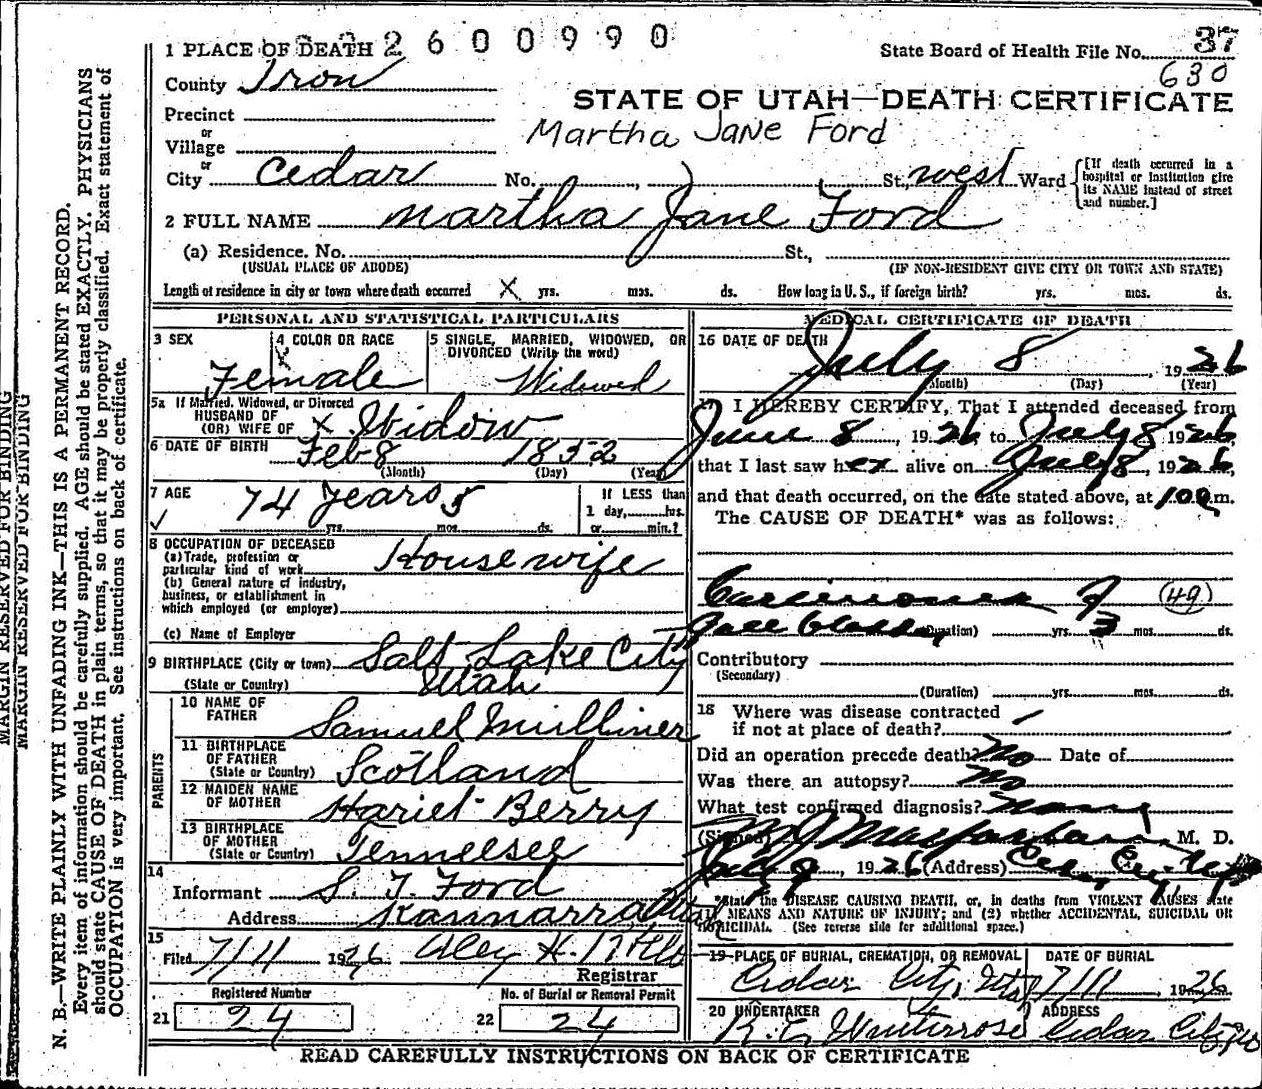 2600990
1 PLACE OF DEATH
State Board of Health File No. 37
630
County Iron
STATE OF UTAH—DEATH CERTIFICATE
Precinct
or
Village
Martha Jane Ford
or
City Cedar No. , St., west Ward
[If death occurred in a hospital or institution give its NAME instead of street and number.]
2 FULL NAME Martha Jane Ford
(a) Residence. No. St.,
(USUAL PLACE OF ABODE) (IF NON-RESIDENT GIVE CITY OR TOWN AND STATE)
Length of residence in city or town where death occurred X yrs. mos. ds. How long in U. S., if foreign birth? yrs. mos. ds.
PERSONAL AND STATISTICAL PARTICULARS
3 SEX 4 COLOR OR RACE 5 SINGLE, MARRIED, WIDOWED, OR DIVORCED (Write the word)
X
Female Widowed
5a If Married, Widowed, or Divorced
HUSBAND OF
(OR) WIFE OF X Widow
6 DATE OF BIRTH Feb 8 1852
(Month) (Day) (Year)
7 AGE 74 years 5
yrs. mos. ds.
If LESS than
1 day, hrs.
or min.?
8 OCCUPATION OF DECEASED
(a) Trade, profession or
particular kind of work Housewife
(b) General nature of industry,
business, or establishment in
which employed (or employer)
(c) Name of Employer
9 BIRTHPLACE (City or town) Salt Lake City
(State or Country) Utah
PARENTS
10 NAME OF
FATHER Samuel Mulliner
11 BIRTHPLACE
OF FATHER
(State or Country) Scotland
12 MAIDEN NAME
OF MOTHER Hariet Berry
13 BIRTHPLACE
OF MOTHER
(State or Country) Tennessee
14
Informant S. T. Ford
Address Kannarra Utah
15
Filed 7/11 1926
Registrar
Registered Number No. of Burial or Removal Permit
21 24 22 24
MEDICAL CERTIFICATE OF DEATH
16 DATE OF DEATH
July 8, 1926
(Month) (Day) (Year)
17 I HEREBY CERTIFY, That I attended deceased from
June 8, 1926 to July 8 1926,
that I last saw her alive on July 8, 1926,
and that death occurred, on the date stated above, at m.
The CAUSE OF DEATH* was as follows:
Carcinoma of (49)
Gall bladder (Duration) yrs. 3 mos. ds.
Contributory
(Secondary)
(Duration) yrs. mos. ds.
18 Where was disease contracted
if not at place of death?
Did an operation precede death? No Date of
Was there an autopsy? No
What test confirmed diagnosis?
(Signed) M. D.
July 9, 1926 (Address) Cedar City Utah
*State the DISEASE CAUSING DEATH, or, in deaths from VIOLENT CAUSES state
(1) MEANS AND NATURE OF INJURY; and (2) whether ACCIDENTAL, SUICIDAL OR
HOMICIDAL. (See reverse side for additional space.)
19 PLACE OF BURIAL, CREMATION, OR REMOVAL DATE OF BURIAL
Cedar City, Utah 7/11, 1926
20 UNDERTAKER ADDRESS
Cedar City
READ CAREFULLY INSTRUCTIONS ON BACK OF CERTIFICATE
MARGIN RESERVED FOR BINDING
MARGIN RESERVED FOR BINDING
N. B.—WRITE PLAINLY WITH UNFADING INK—THIS IS A PERMANENT RECORD.
Every item of information should be carefully supplied. AGE should be stated EXACTLY. PHYSICIANS
should state CAUSE OF DEATH in plain terms, so that it may be properly classified. Exact statement of
OCCUPATION is very important. See instructions on back of certificate.